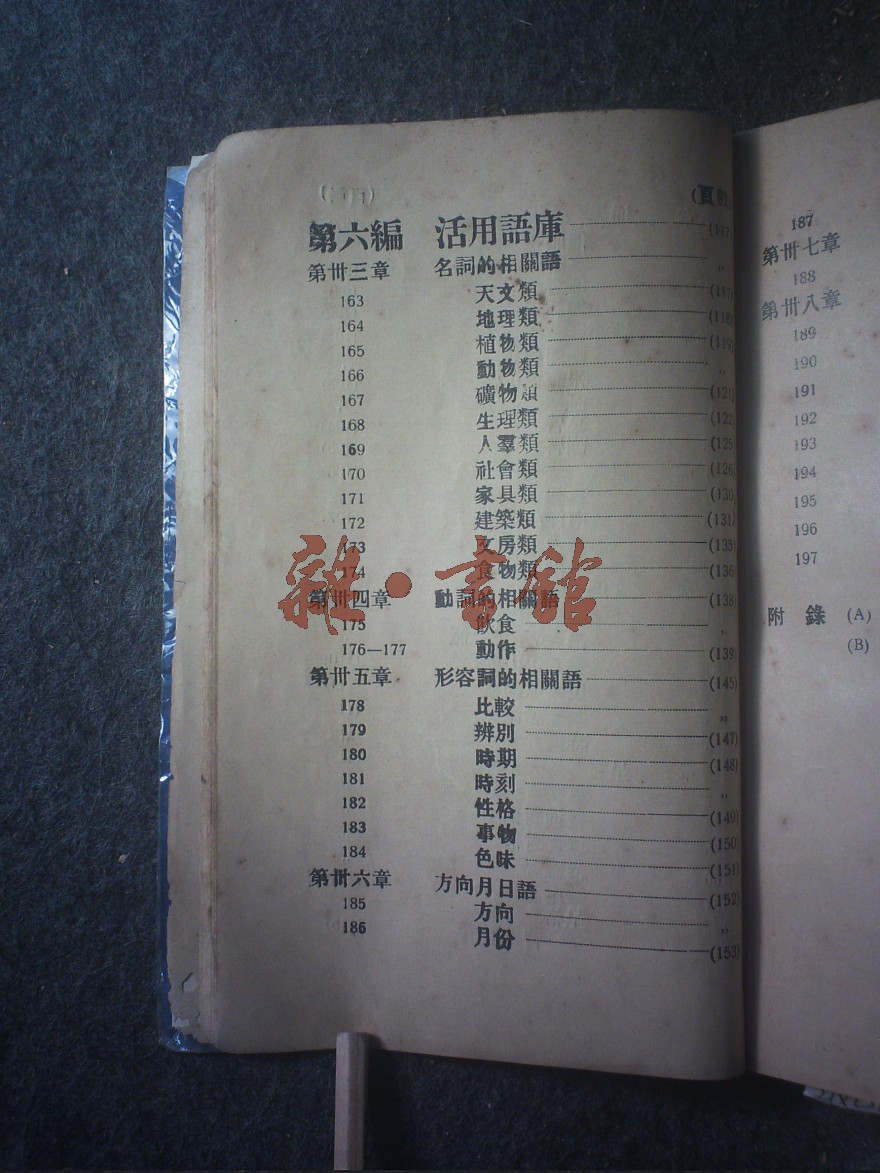 (頁數)
第六編 活用語庫 (117)
第卅三章 名詞的相關語 〃
163 天文類 (117)
164 地理類 (118)
165 植物類 (119)
166 動物類 〃
167 礦物類 (121)
168 生理類 (122)
169 人羣類 (125)
170 社會類 (126)
171 家具類 (130)
172 建築類 (131)
173 文房類 (135)
174 食物類 (136)
第卅四章 動詞的相關語 (138)
175 飲食 〃
176—177 動作 (139)
第卅五章 形容詞的相關語 (145)
178 比較 〃
179 辨別 (147)
180 時期 (148)
181 時刻 〃
182 性格 (149)
183 事物 (150)
184 色味 (151)
第卅六章 方向月日語 (152)
185 方向 〃
186 月份 (153)
雜·書館
187
第卅七章
188
第卅八章
189
190
191
192
193
194
195
196
197
附錄 (A)
(B)